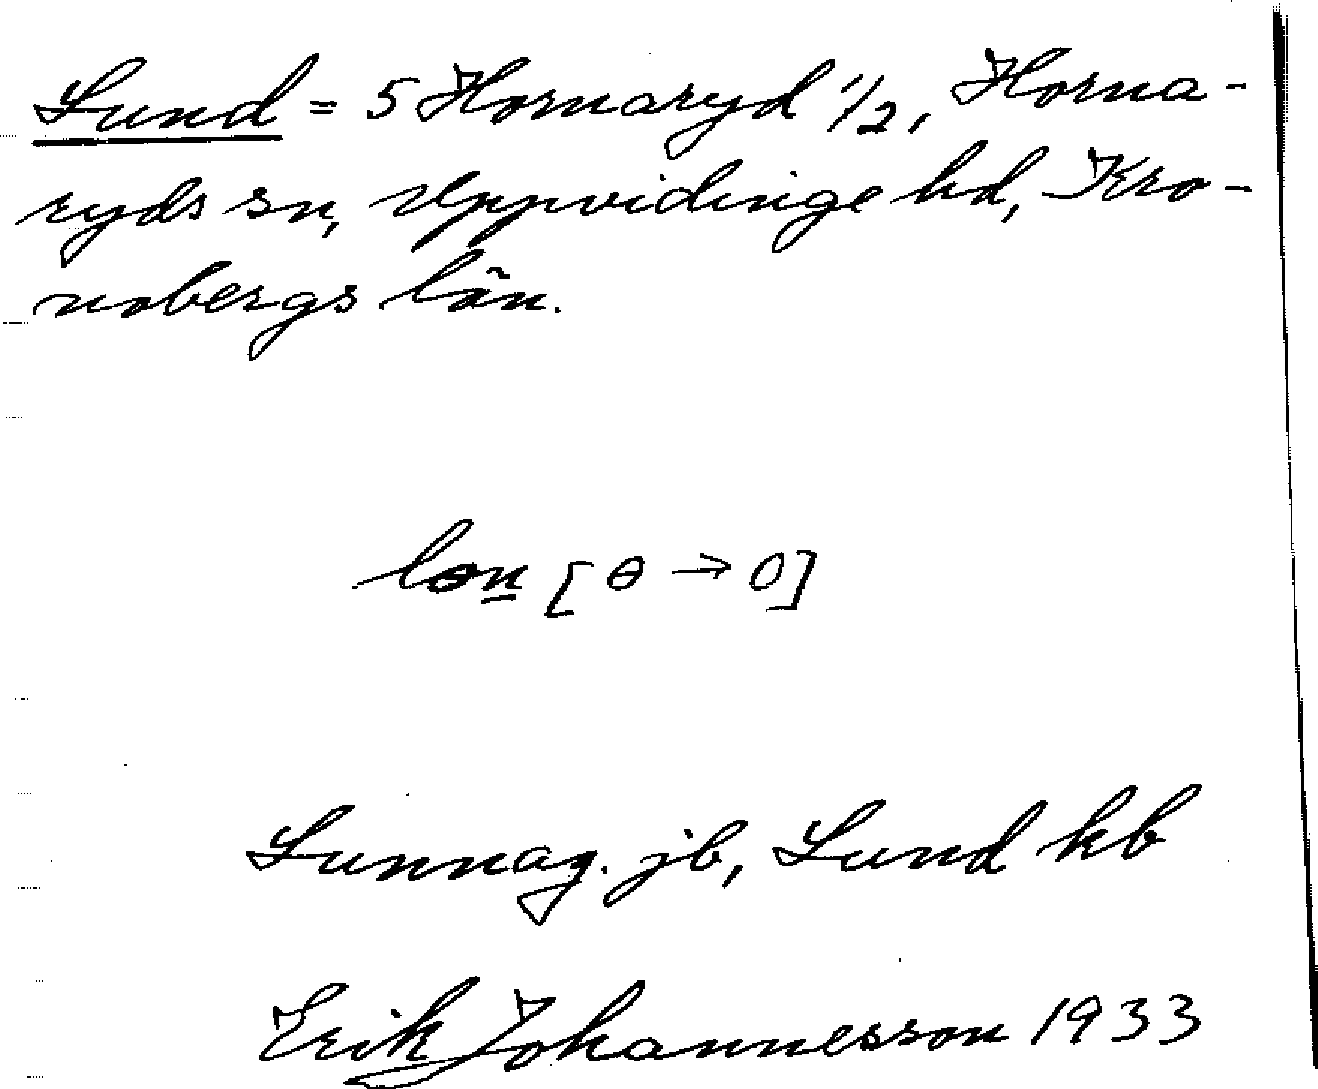 Lund = 5 Hornaryd 1/2, Horna-
ryds sn, Uppvidinge hd, Kro-
nobergs län.
lɵn [ɵ → o]
Lunnag. jb, Lund kb
Erik Johannesson 1933